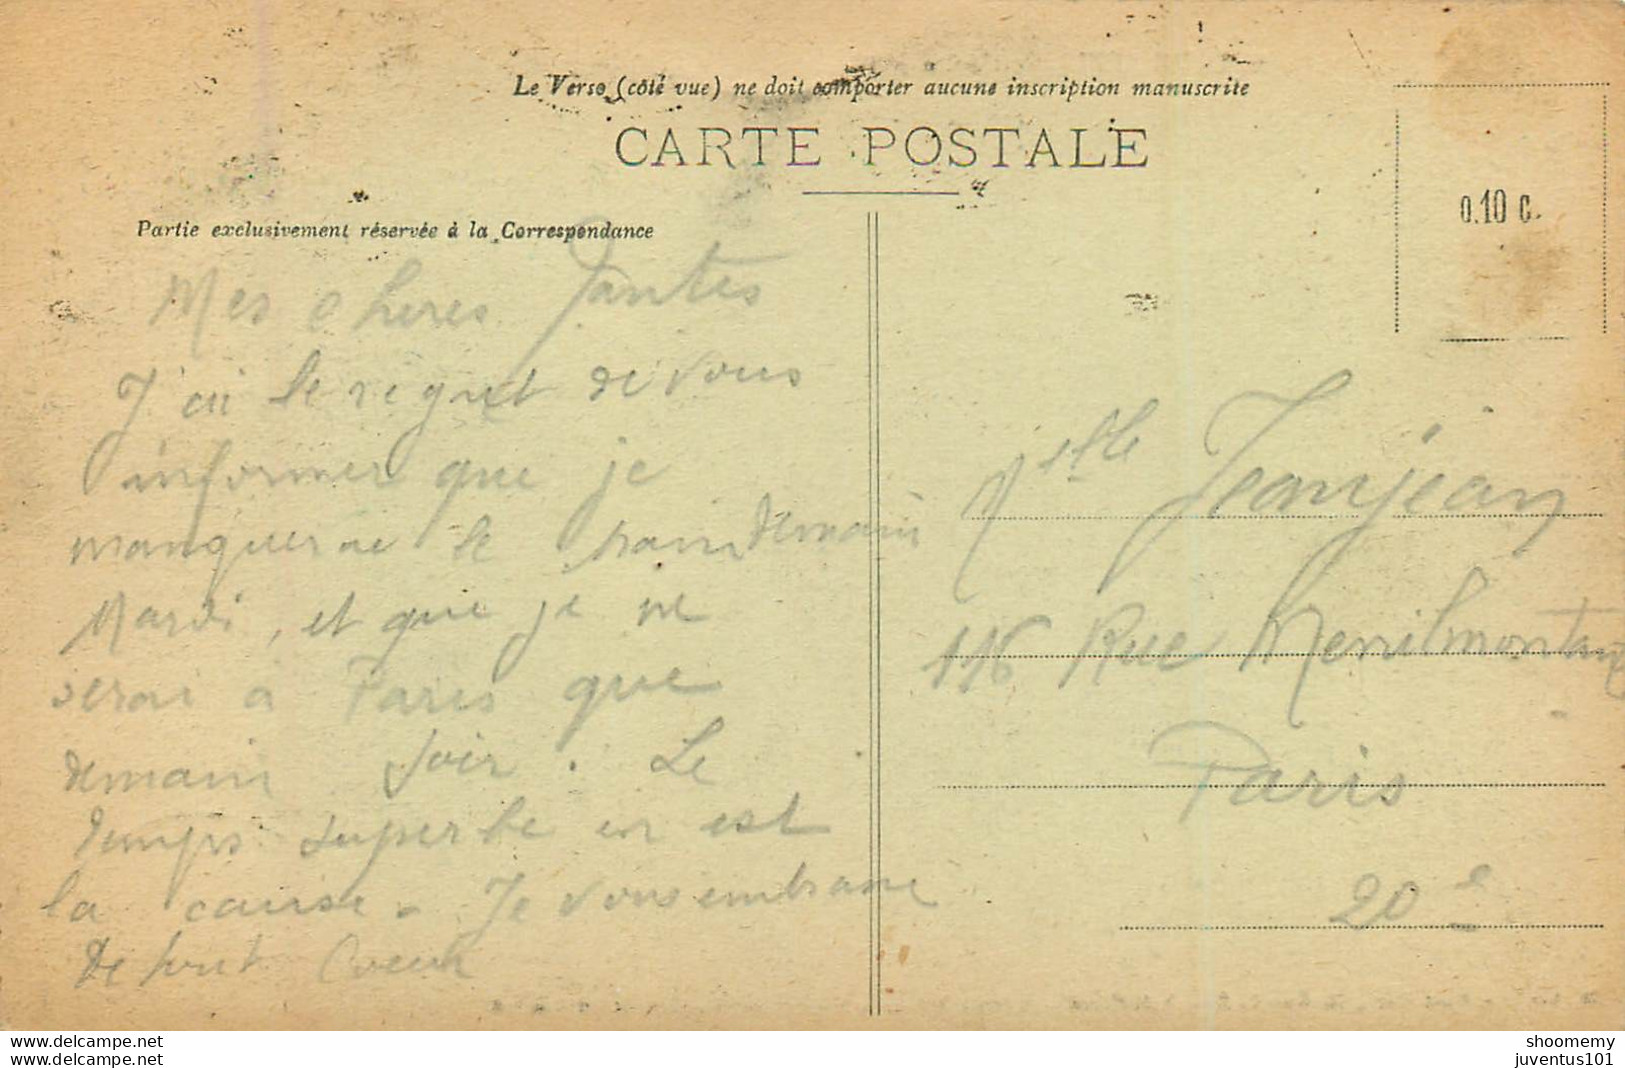 Le Verso (côté vue) ne doit comporter aucune inscription manuscrite
CARTE POSTALE
0.10 c.
Partie exclusivement réservée à la Correspondance
Mes cheres Tantes
J'ai le regret de vous
informer que je
manquerai le train demain
Mardi, et que je ne
serai a Paris que
demain soir. Le
temps superbe en est
la cause - Je vous embrasse
De tout Coeur
Melle Jeanjean
116 Rue Menilmontant
Paris
20e
www.delcampe.net
www.delcampe.net
shoomemy
juventus101